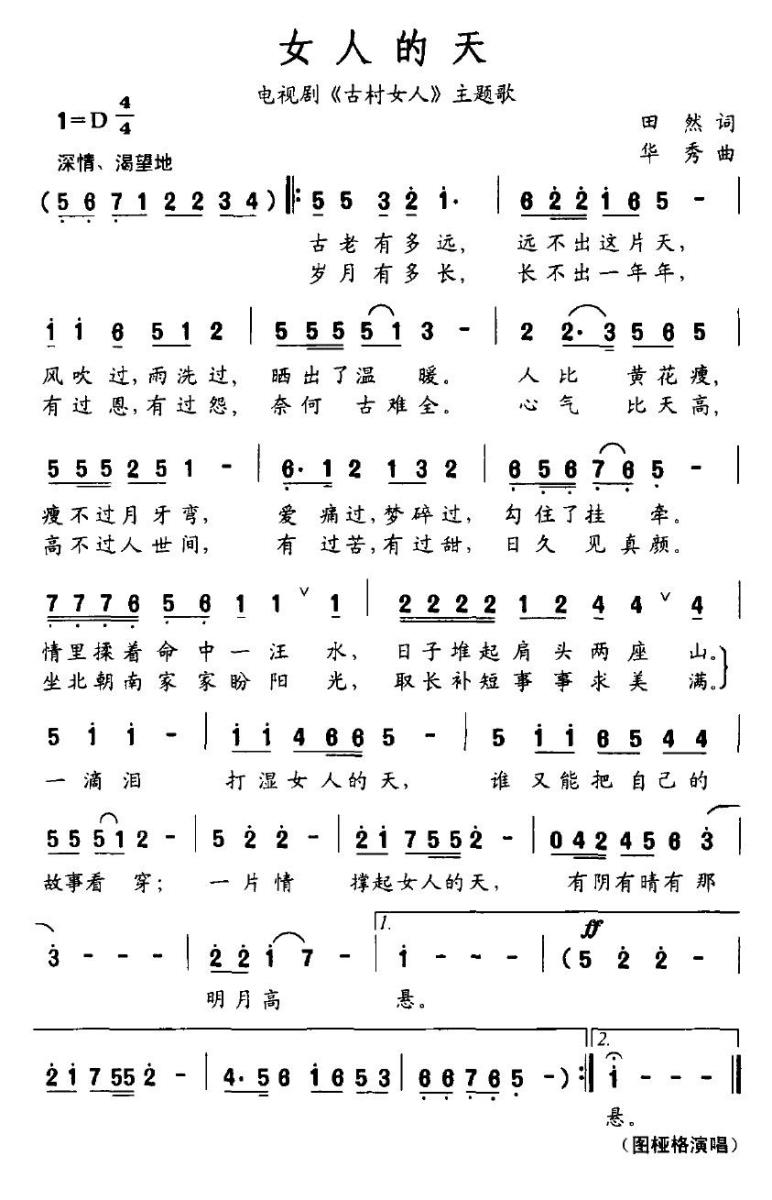 女人的天
电视剧《古村女人》主题歌
1=D 4/4
田然词
华秀曲
深情、渴望地
(5 6 7 1 2 2 3 4) 𝄆 5 5 3 2 1· | 6 2 2 1 6 5 - |
古老有多远, 远不出这片天,
岁月有多长, 长不出一年年,
1 1 6 5 1 2 | 5 5 5 5 1 3 - | 2 2· 3 5 6 5 |
风吹过,雨洗过, 晒出了温暖。 人比黄花瘦,
有过恩,有过怨, 奈何古难全。 心气比天高,
5 5 5 2 5 1 - | 6· 1 2 1 3 2 | 6 5 6 7 6 5 - |
瘦不过月牙弯, 爱痛过,梦碎过, 勾住了挂牵。
高不过人世间, 有过苦,有过甜, 日久见真颜。
7 7 7 6 5 6 1 1 ∨ 1 | 2 2 2 2 1 2 4 4 ∨ 4 |
情里揉着命中一汪水, 日子堆起肩头两座山。
坐北朝南家家盼阳光, 取长补短事事求美满。
5 1 1 - | 1 1 4 6 6 5 - | 5 1 1 6 5 4 4 |
一滴泪 打湿女人的天, 谁又能把自己的
5 5 5 1 2 - | 5 2 2 - | 2 1 7 5 5 2 - | 0 4 2 4 5 6 3 |
故事看穿; 一片情 撑起女人的天, 有阴有晴有那
3 - - - | 2 2 1 7 - | 1. 1 - - - | ff (5 2 2 - |
明月高 悬。
2 1 7 5 5 2 - | 4· 5 6 1 6 5 3 | 6 6 7 6 5 -) 𝄇 2. 1 - - - ‖
悬。
(图桠格演唱)